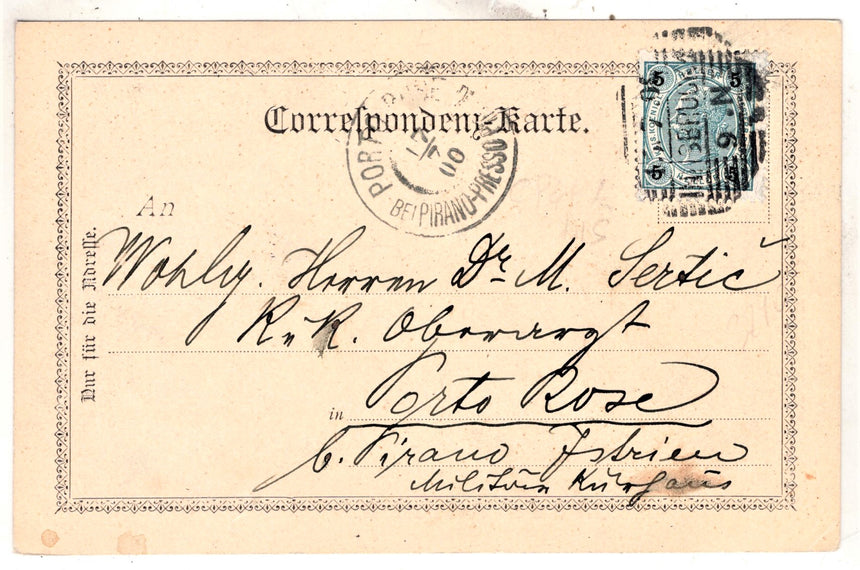 Correspondenz-Karte.
PORT ROSE
BEI PIRANO-PRESSO
00
5 5
9 N
5 5
An
Nur für die Adresse.
Wohlg. Herren Dr. M. Sertić
K. u. K. Oberarzt
in Porto Rose
b. Pirano Istrien
Militär Kurhaus